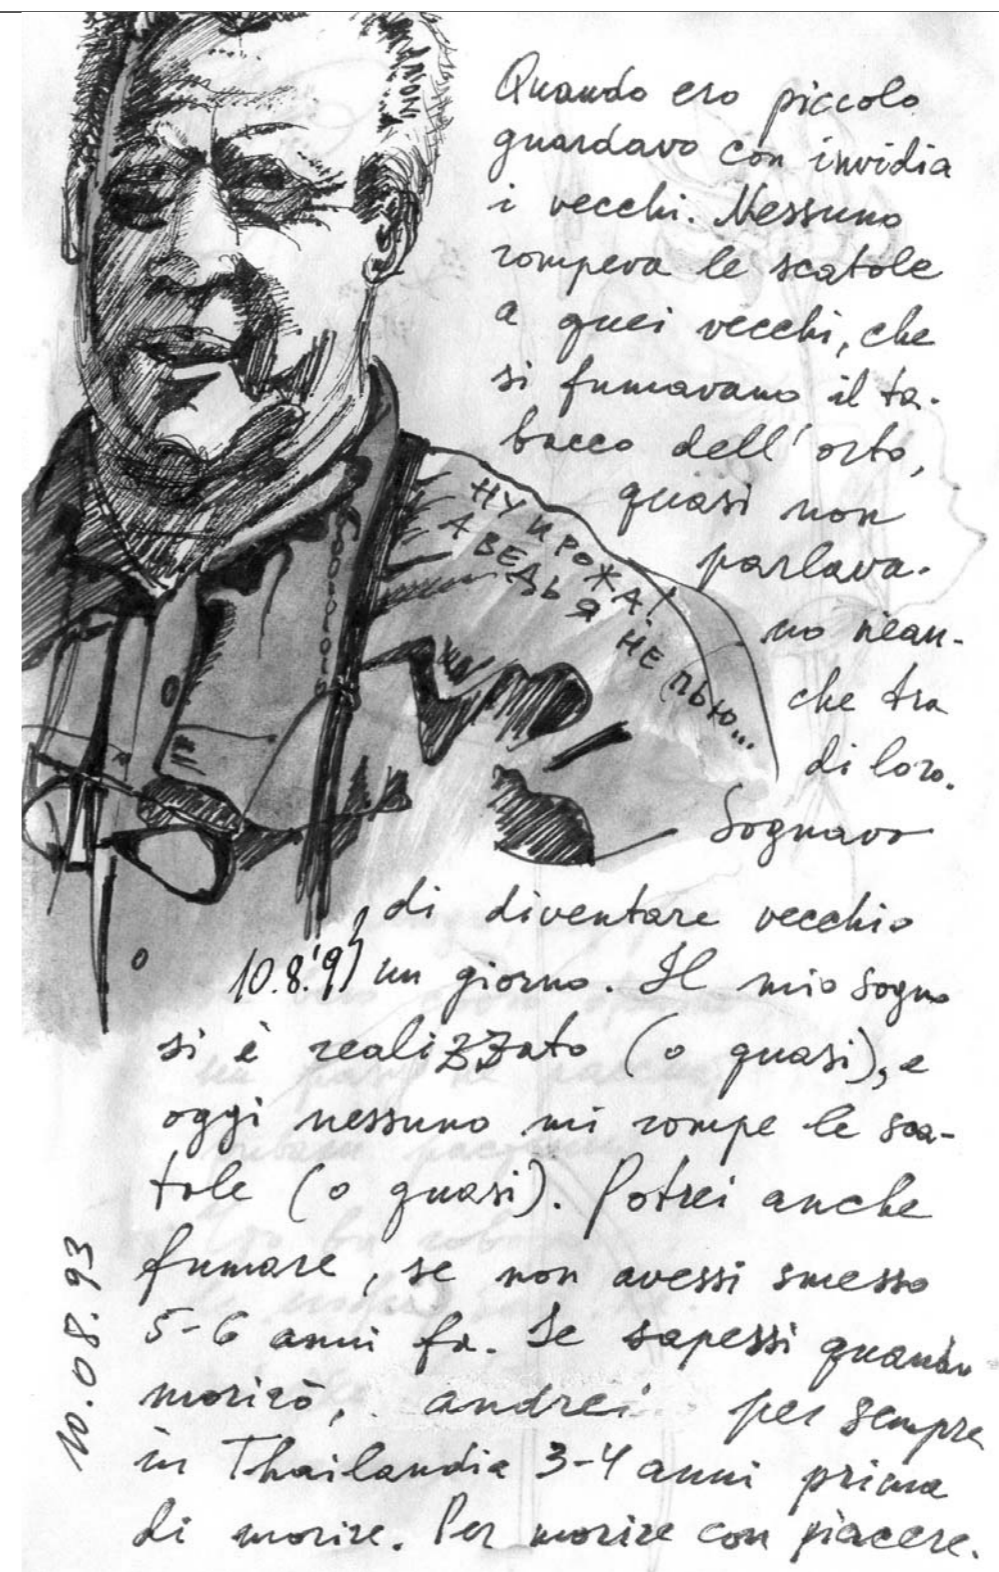 Quando ero piccolo
guardavo con invidia
i vecchi. Nessuno
rompeva le scatole
a quei vecchi, che
si fumavano il ta-
bacco dell'orto,
quasi non
parlava-
no nean-
che tra
di loro.
Sognavo
di diventare vecchio
un giorno. Il mio sogno
si è realizzato (o quasi), e
oggi nessuno mi rompe le sca-
tole (o quasi). Potrei anche
fumare, se non avessi smesso
5-6 anni fa. Se sapessi quando
morirò, andrei per sempre
in Thailandia 3-4 anni prima
di morire. Per morire con piacere.
НУ И РОЖА!
А ВЕДЬ Я НЕ ПЬЮ...
10.8.'9
10.08.93